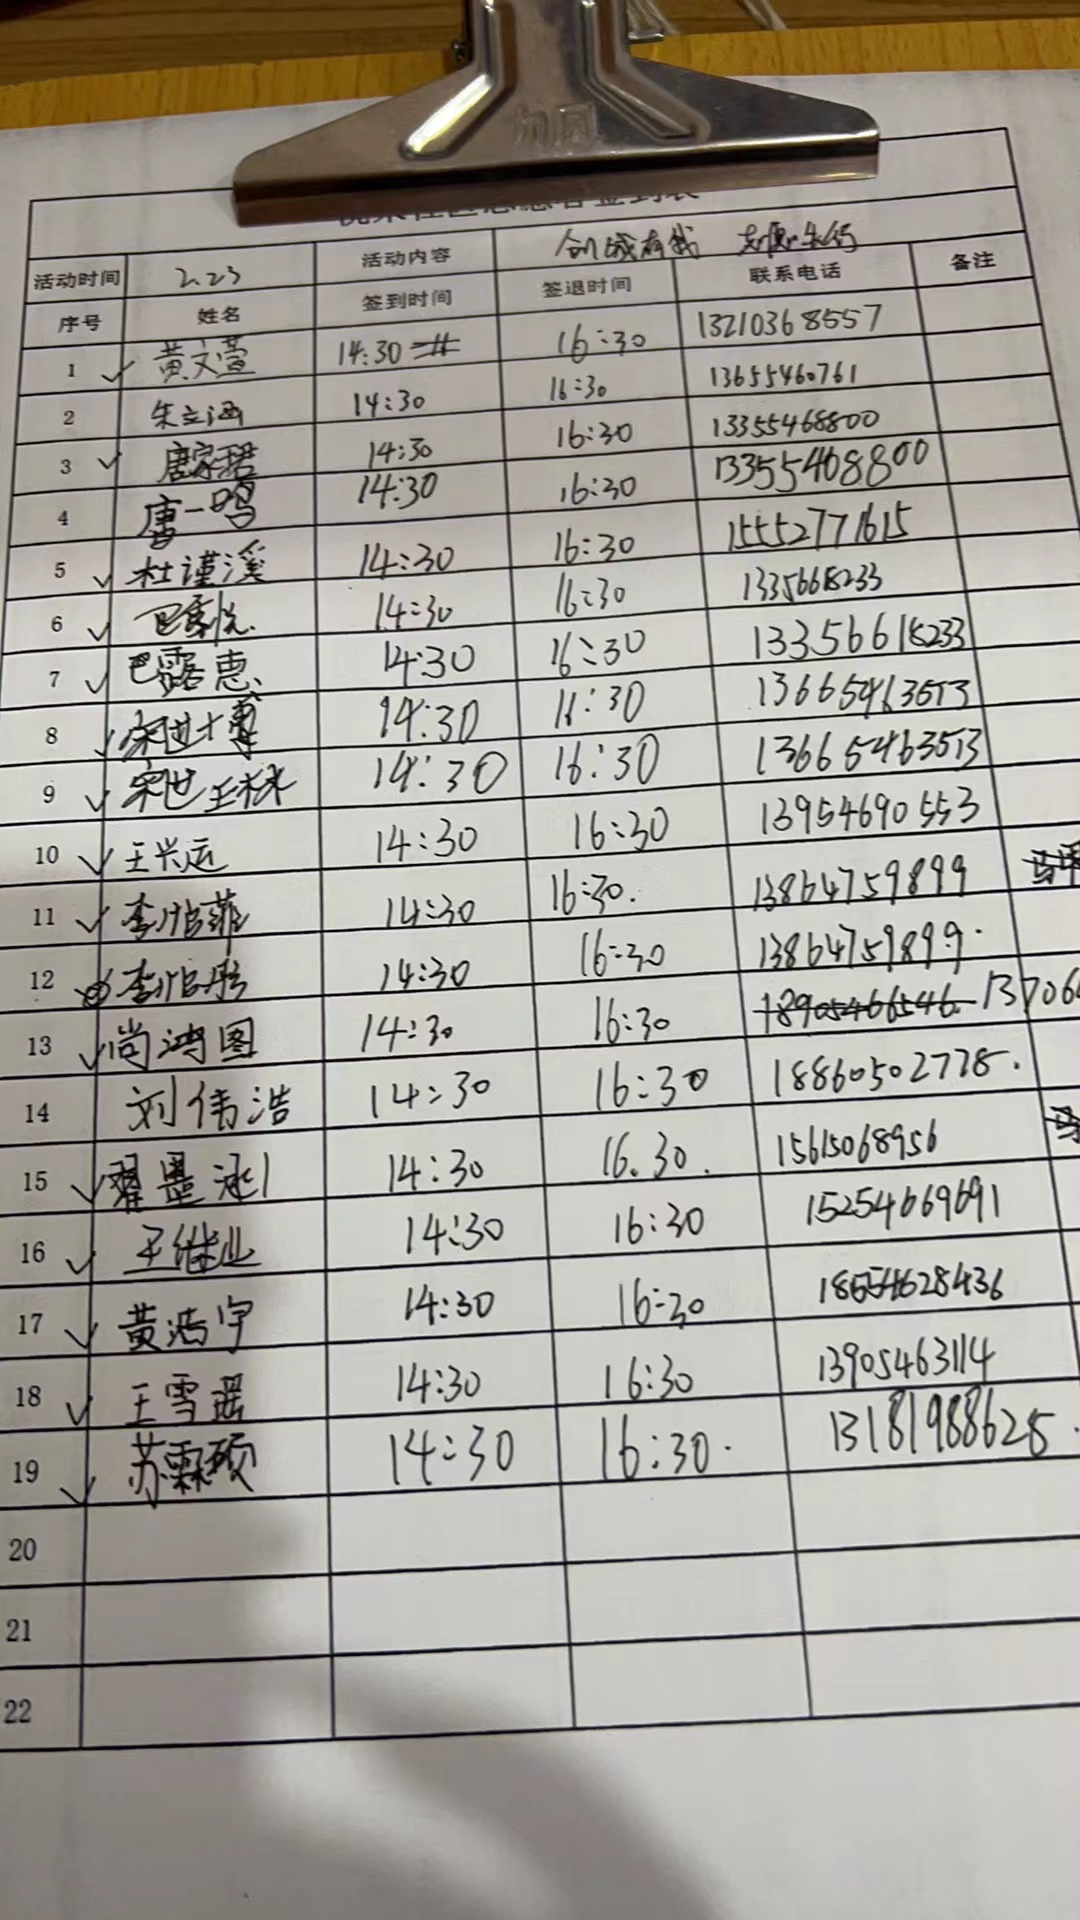 加固
社区志愿者签到表
活动时间 2.23 活动内容 创城有我 志愿先行
序号 姓名 签到时间 签退时间 联系电话 备注
1 黄文萱 14:30 16:30 13210368557
2 朱立涵 14:30 16:30 13655460761
3 唐家珺 14:30 16:30 13355468800
4 唐一鸣 14:30 16:30 13355468800
5 杜谨溪 14:30 16:30 15552771615
6 巴露悦 14:30 16:30 13356618233
7 巴露惠 14:30 16:30 13356618233
8 宋世博 14:30 16:30 13665463513
9 宋世琳 14:30 16:30 13665463513
10 王兴运 14:30 16:30 13954690553
11 李怡菲 14:30 16:30. 13864759899
12 李怡彤 14:30 16:30 13864759899.
13 尚鸿图 14:30 16:30 18905466546 13706
14 刘伟浩 14:30 16:30 18860502778.
15 翟墨泓 14:30 16.30. 15615068956
16 王继业 14:30 16:30 15254669691
17 黄浩宇 14:30 16:30 18654628436
18 王雪瑶 14:30 16:30 13905463114
19 苏霖硕 14:30 16:30. 13181988628.
20
21
22